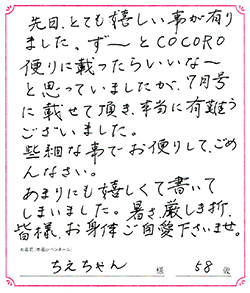 先日、とても嬉しい事が有り
ました。ず〜とCOCORO
便りに載ったらいいな〜
と思っていましたが、7月号
に載せて頂き、本当に有難う
ございました。
些細な事でお便りして、ごめ
んなさい。
あまりにも嬉しくて書いて
しまいました。暑さ厳しき折、
皆様、お身体ご自愛下さいませ。
お名前（本名orペンネーム）
ちえちゃん 様 58歳